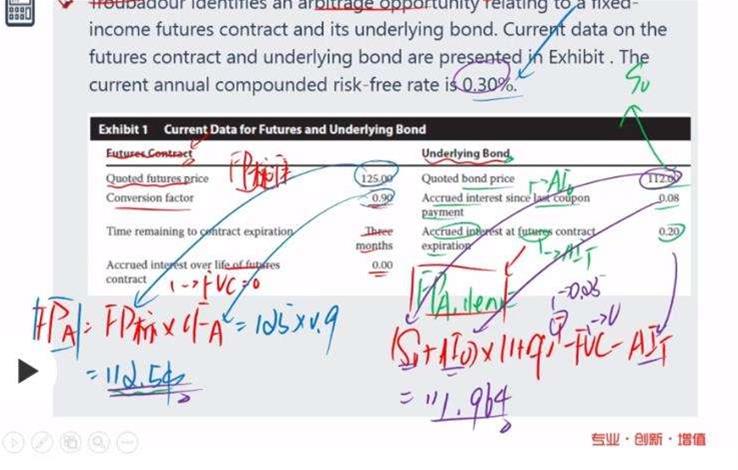 Troubadour identifies an arbitrage opportunity relating to a fixed-
income futures contract and its underlying bond. Current data on the
futures contract and underlying bond are presented in Exhibit . The
current annual compounded risk-free rate is 0.30%.
S0
Exhibit 1 Current Data for Futures and Underlying Bond
Futures Contract
Underlying Bond
Quoted futures price 125.00
FP标
Quoted bond price 112.00
→AI0
Conversion factor 0.90
Accrued interest since last coupon payment 0.08
Time remaining to contract expiration Three months
Accrued interest at futures contract expiration 0.20
→AIT
Accrued interest over life of futures contract 0.00
→FVC=0
FPA,identi
→0.25
FPA = FP标×CFA = 125×0.9
→0
(S0+AI0)×(1+r)T-FVC-AIT
=112.5
=111.964
专业·创新·增值